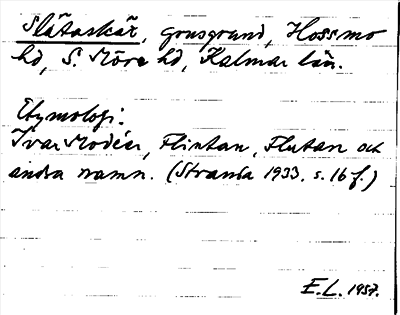 Slätaskär, grusgrund, Hossmo
hd, S. Möre hd, Kalmar län.
Etymologi:
Ivar Modéer, Flintan, Flutan och
andra namn. (Stranda 1933, s. 16 f.)
E.L. 1957.